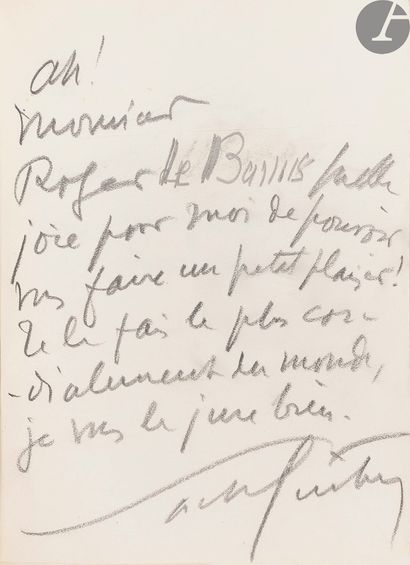 Ah!
Monsieur
Roger de quelle
joie pour moi de pouvoir
vous faire un petit plaisir!
Je le fais le plus cor-
-dialement du monde,
je vous le jure bien.
Sacha Guitry